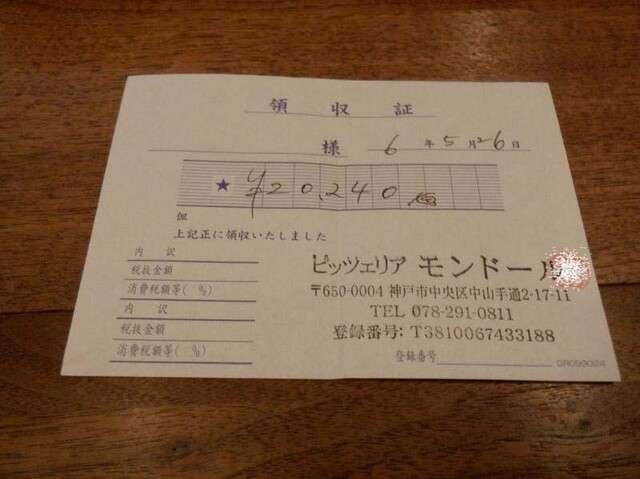 領収証
様 6年5月26日
★ ¥20,240
但
上記正に領収いたしました
内訳
税抜金額
消費税額等( %)
内訳
税抜金額
消費税額等( %)
ピッツェリア モンドール
〒650-0004 神戸市中央区中山手通2-17-11
TEL 078-291-0811
登録番号: T3810067433188
登録番号